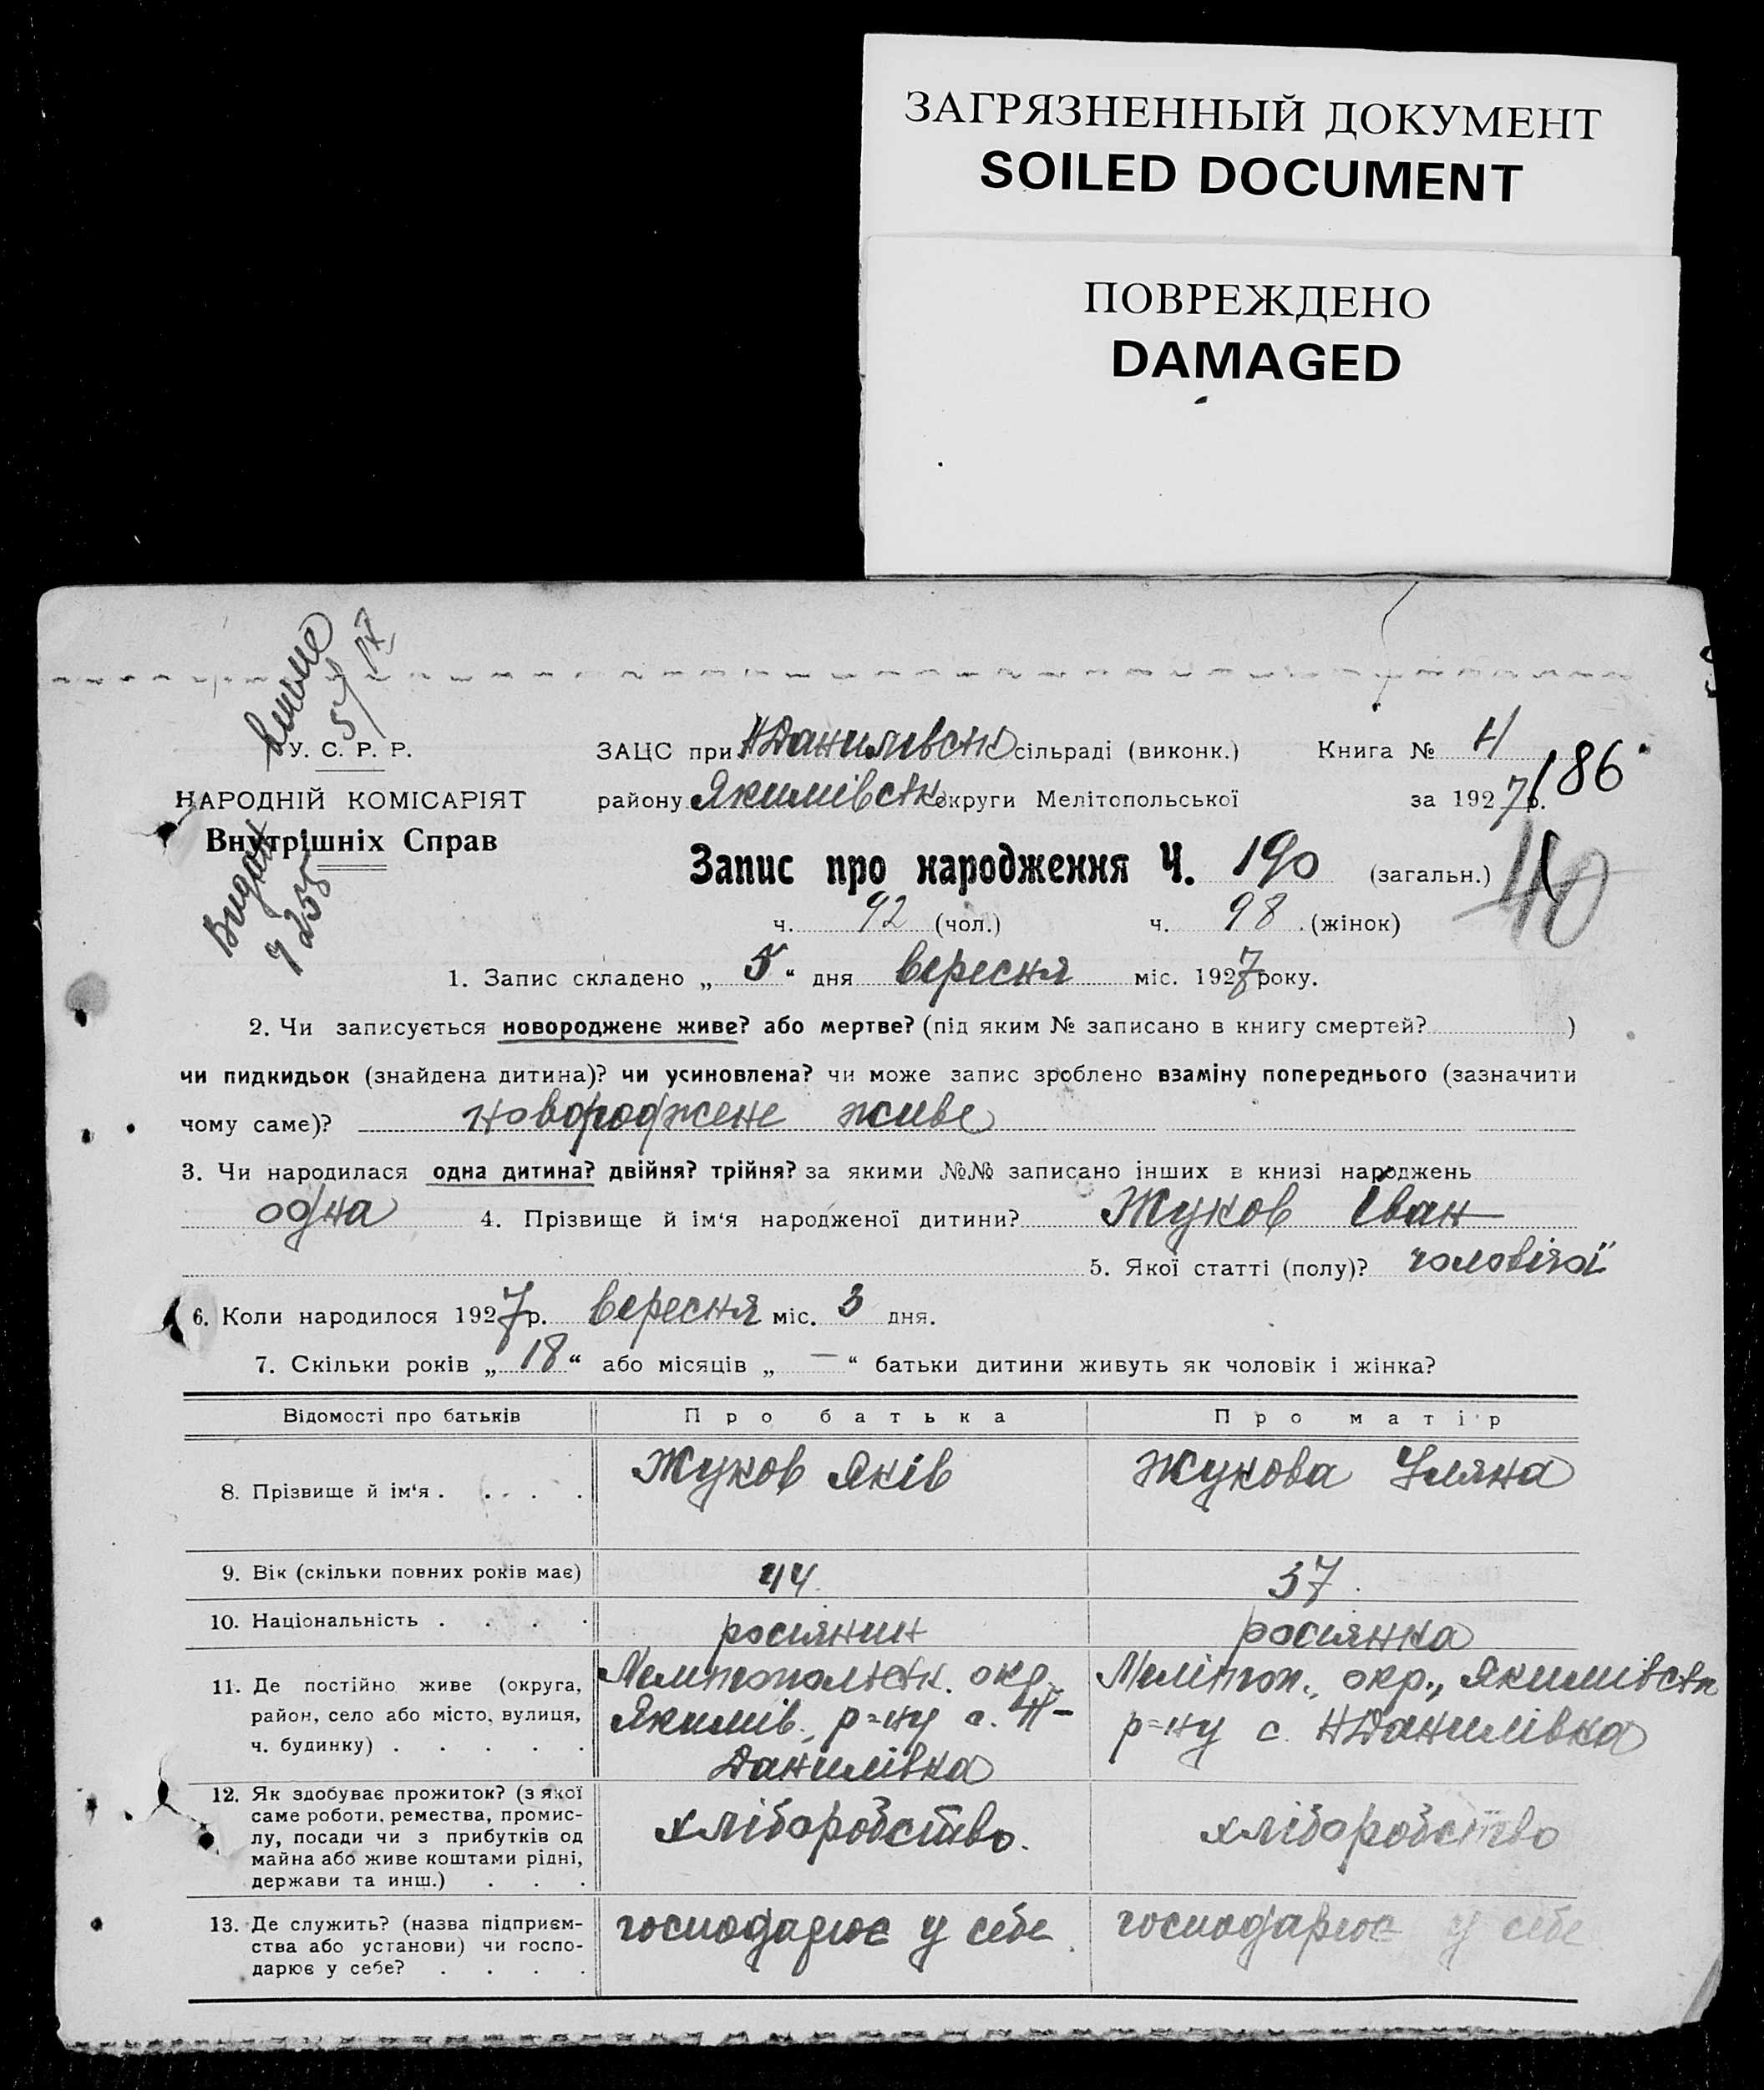 ЗАГРЯЗНЕННЫЙ ДОКУМЕНТ
SOILED DOCUMENT
ПОВРЕЖДЕНО
DAMAGED
У. С. Р. Р.
НАРОДНІЙ КОМІСАРІЯТ
Внутрішніх Справ
ЗАЦС при НДанилівськ сільраді (виконк.) Книга № 4
району Якимівськ округи Мелітопольської за 1927 р. 186
Запис про народження Ч. 190 (загальн.) 40
ч. 92 (чол.) ч. 98 (жінок)
1. Запис складено „ 5 “ дня вересня міс. 1927 року.
2. Чи записується новороджене живе? або мертве? (під яким № записано в книгу смертей? )
чи пидкидьок (знайдена дитина)? чи усиновлена? чи може запис зроблено взаміну попереднього (зазначити
чому саме)? новороджене живе
3. Чи народилася одна дитина? двійня? трійня? за якими №№ записано інших в книзі народжень
одна 4. Прізвище й ім‘я народженої дитини? Жуков Іван
5. Якої статті (полу)? чоловічої
6. Коли народилося 1927 р. вересня міс. 3 дня.
7. Скільки років „ 18 “ або місяців „ — “ батьки дитини живуть як чоловік і жінка?
Відомості про батьків Про батька Про матір
8. Прізвище й ім‘я . . . . . Жуков Яків Жукова Уляна
9. Вік (скільки повних років має) 44. 37.
10. Національність . . . . росіянин росіянка
11. Де постійно живе (округа, Мелитопольськ. окр. Меліт​оп., окр., Якимівськ
район, село або місто, вулиця, Якимів. р=ну с. Н- р=ну с. НДанилівка
ч. будинку) . . . . . Данилівка
12. Як здобуває прожиток? (з якої
саме роботи, ремества, промис-
лу, посади чи з прибутків од хліборобство. хліборобство
майна або живе коштами рідні,
держави та инш.) . . .
13. Де служить? (назва підприєм- господарює у себе. господарює у себе
ства або установи) чи госпо-
дарює у себе? . . . .
Видан
255